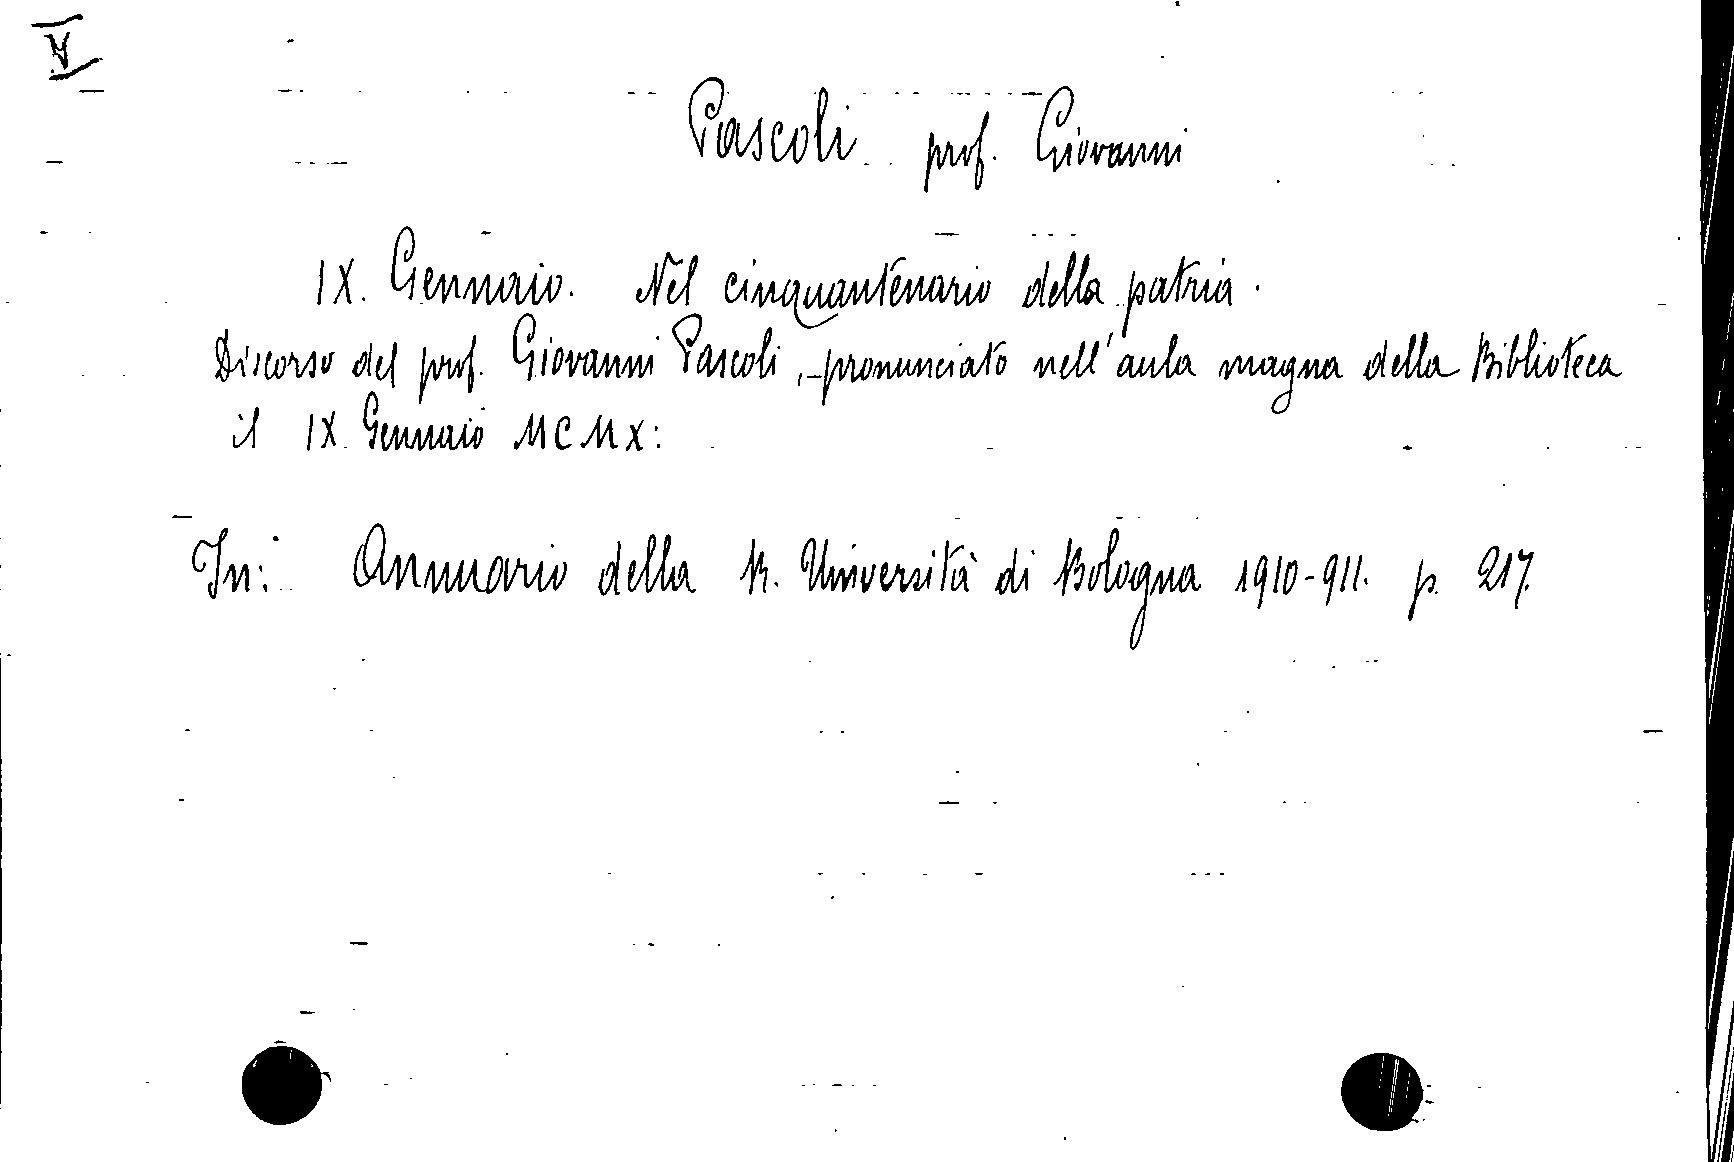 V
Pascoli prof. Giovanni
IX. Gennaio. Nel cinquantenario della patria.
Discorso del prof. Giovanni Pascoli, pronunciato nell'aula magna della Biblioteca
il IX Gennaio MCMX:
In: Annuario della R. Università di Bologna 1910-911. p. 217.